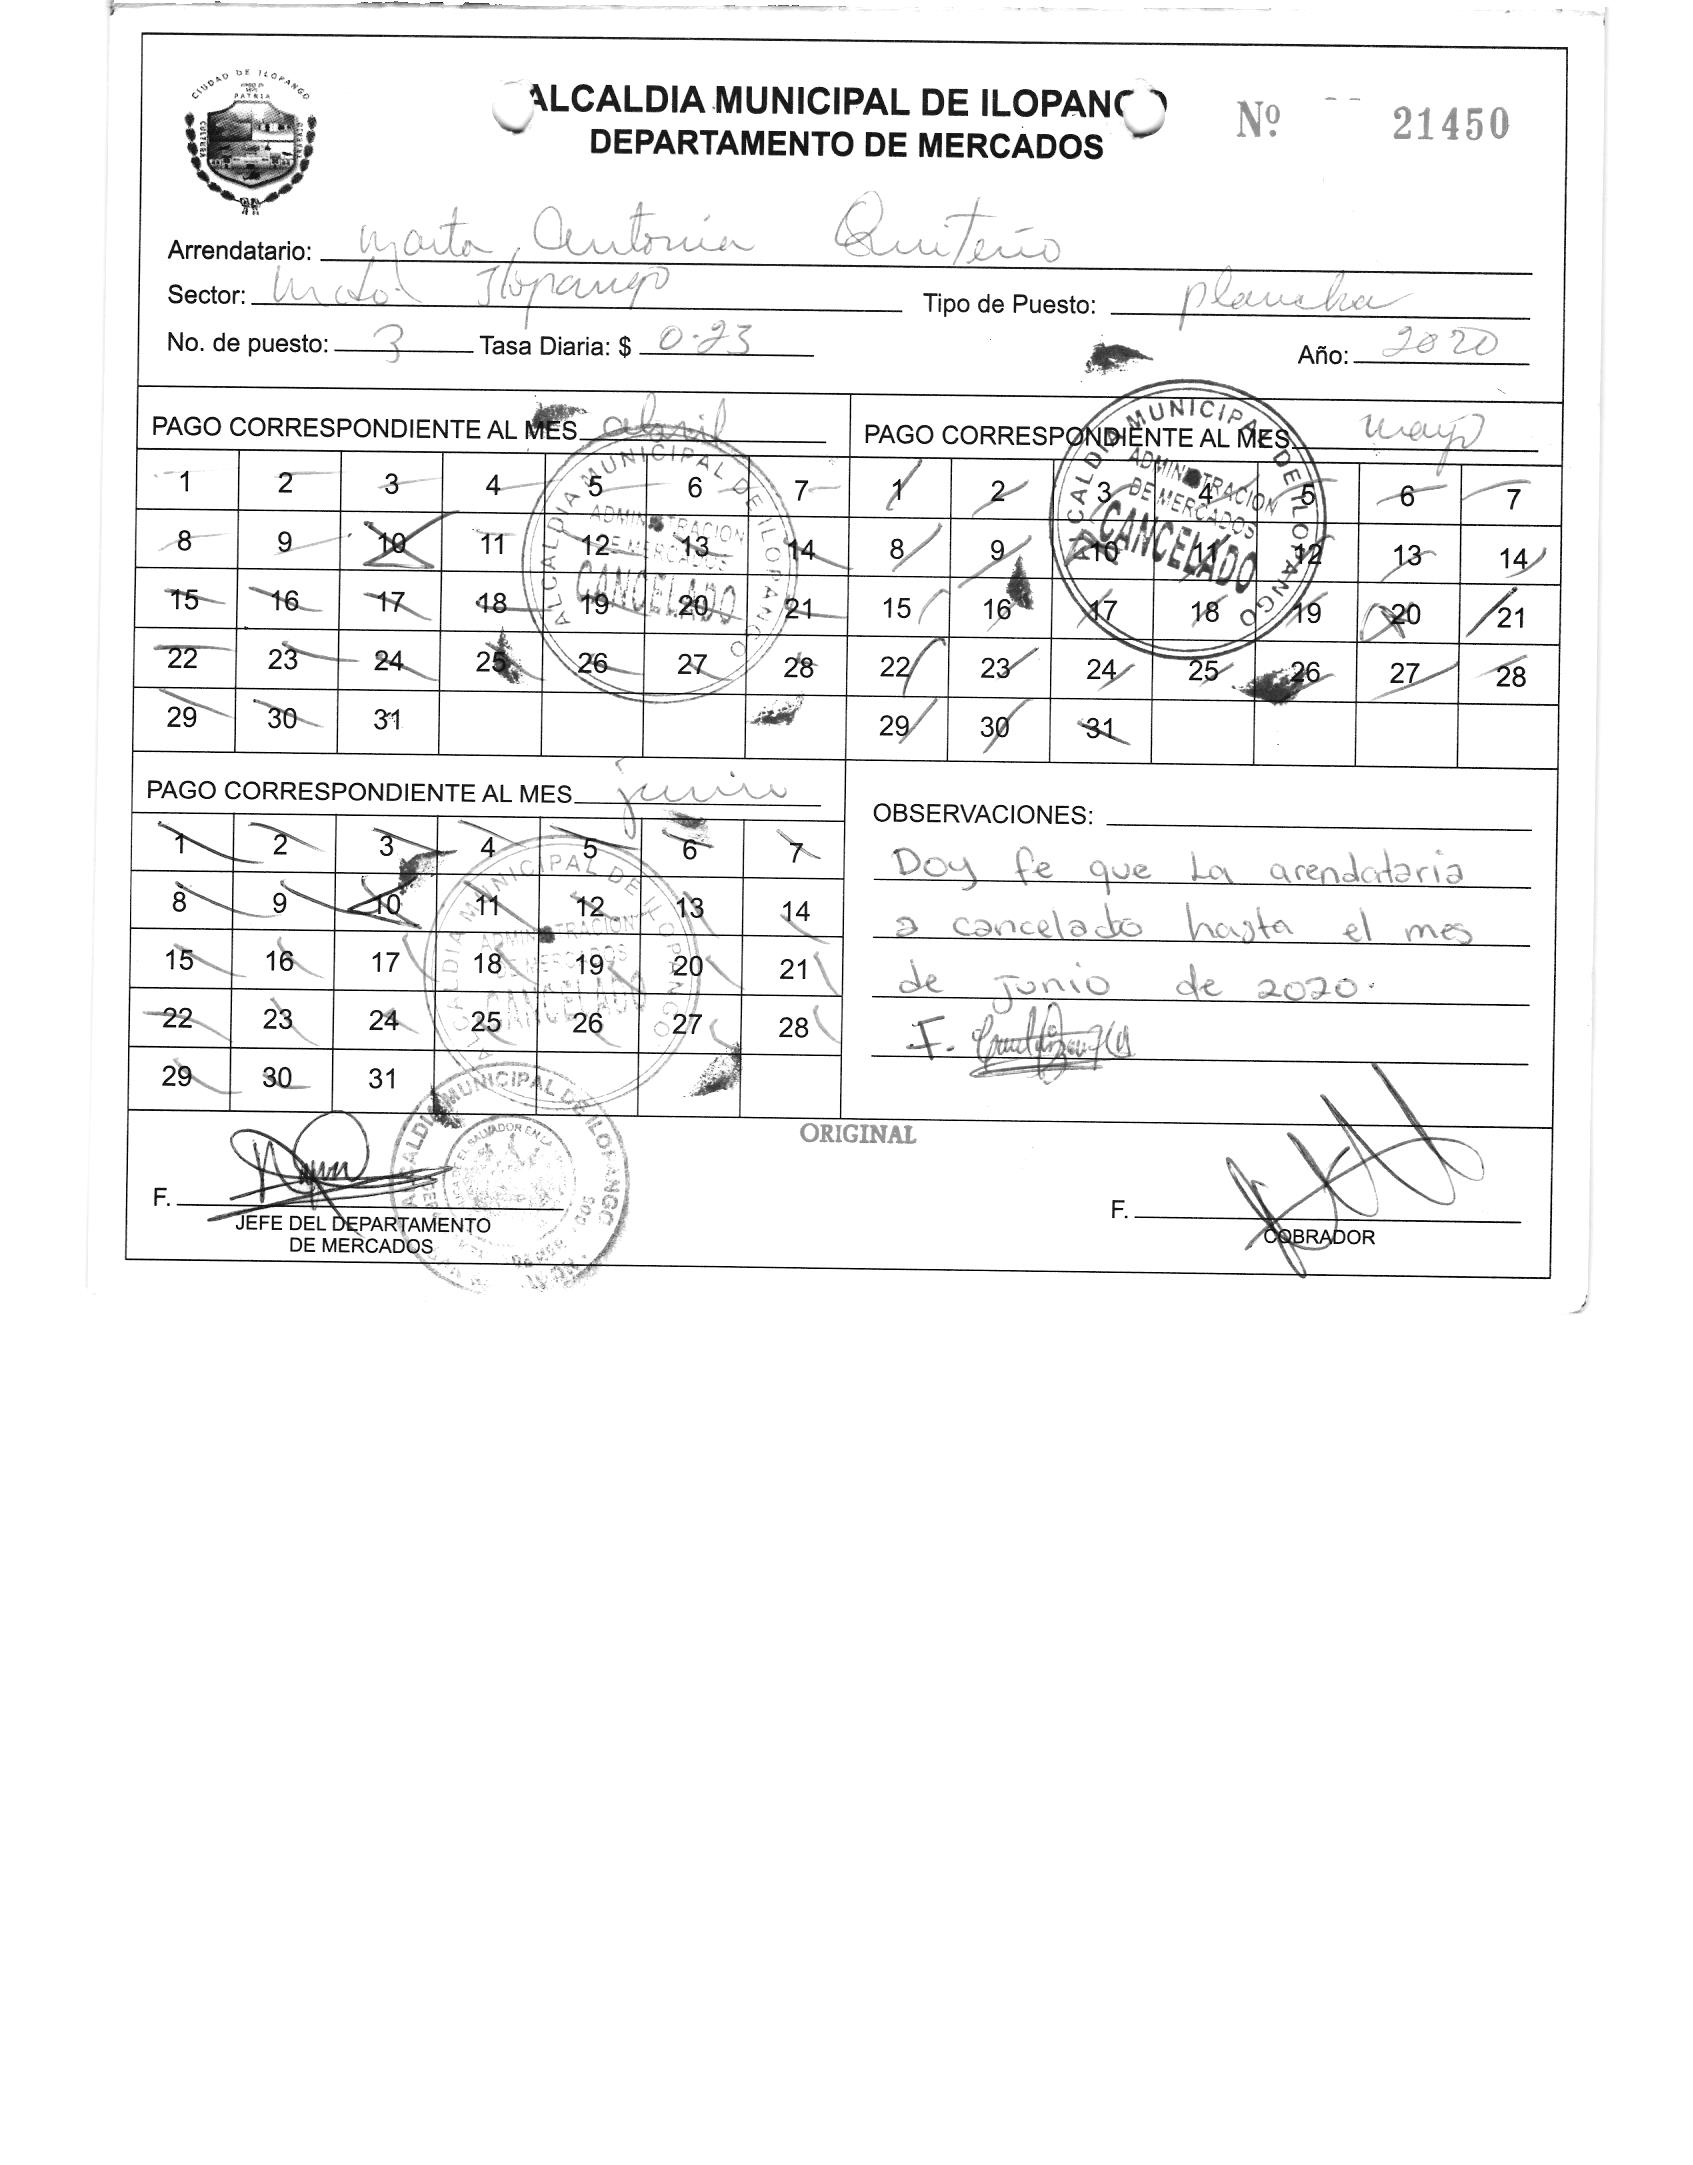 CIUDAD DE ILOPANGO
PATRIA
ALCALDIA MUNICIPAL DE ILOPANGO
DEPARTAMENTO DE MERCADOS
Nº 21450
Arrendatario: Marta Antonia Quiteño
Sector: Ilopango
Tipo de Puesto: plancha
No. de puesto: 3 Tasa Diaria: $ 0.23
Año: 2020
PAGO CORRESPONDIENTE AL MES abril
1 2 3 4 5 6 7
8 9 10 11 12 13 14
15 16 17 18 19 20 21
22 23 24 25 26 27 28
29 30 31
ALCALDIA MUNICIPAL DE ILOPANGO
ADMINISTRACION
DE MERCADOS
CANCELADO
PAGO CORRESPONDIENTE AL MES mayo
1 2 3 4 5 6 7
8 9 10 11 12 13 14
15 16 17 18 19 20 21
22 23 24 25 26 27 28
29 30 31
ALCALDIA MUNICIPAL DE ILOPANGO
ADMINISTRACION
DE MERCADOS
CANCELADO
PAGO CORRESPONDIENTE AL MES junio
1 2 3 4 5 6 7
8 9 10 11 12 13 14
15 16 17 18 19 20 21
22 23 24 25 26 27 28
29 30 31
ALCALDIA MUNICIPAL DE ILOPANGO
ADMINISTRACION
DE MERCADOS
CANCELADO
OBSERVACIONES:
Doy fe que La arendataria
a cancelado hasta el mes
de junio de 2020.
F.
ORIGINAL
ALCALDIA MUNICIPAL DE ILOPANGO
F.
JEFE DEL DEPARTAMENTO
DE MERCADOS
F.
COBRADOR